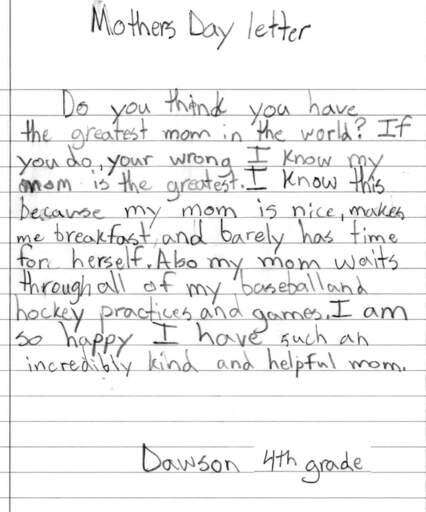 Mothers Day letter
Do you think you have
the greatest mom in the world? If
you do, your wrong I know my
mom is the greatest. I know this
because my mom is nice, makes
me breakfast, and barely has time
for herself. Also my mom waits
through all of my baseball and
hockey practices and games. I am
so happy I have such an
incredibly kind and helpful mom.
Dawson 4th grade